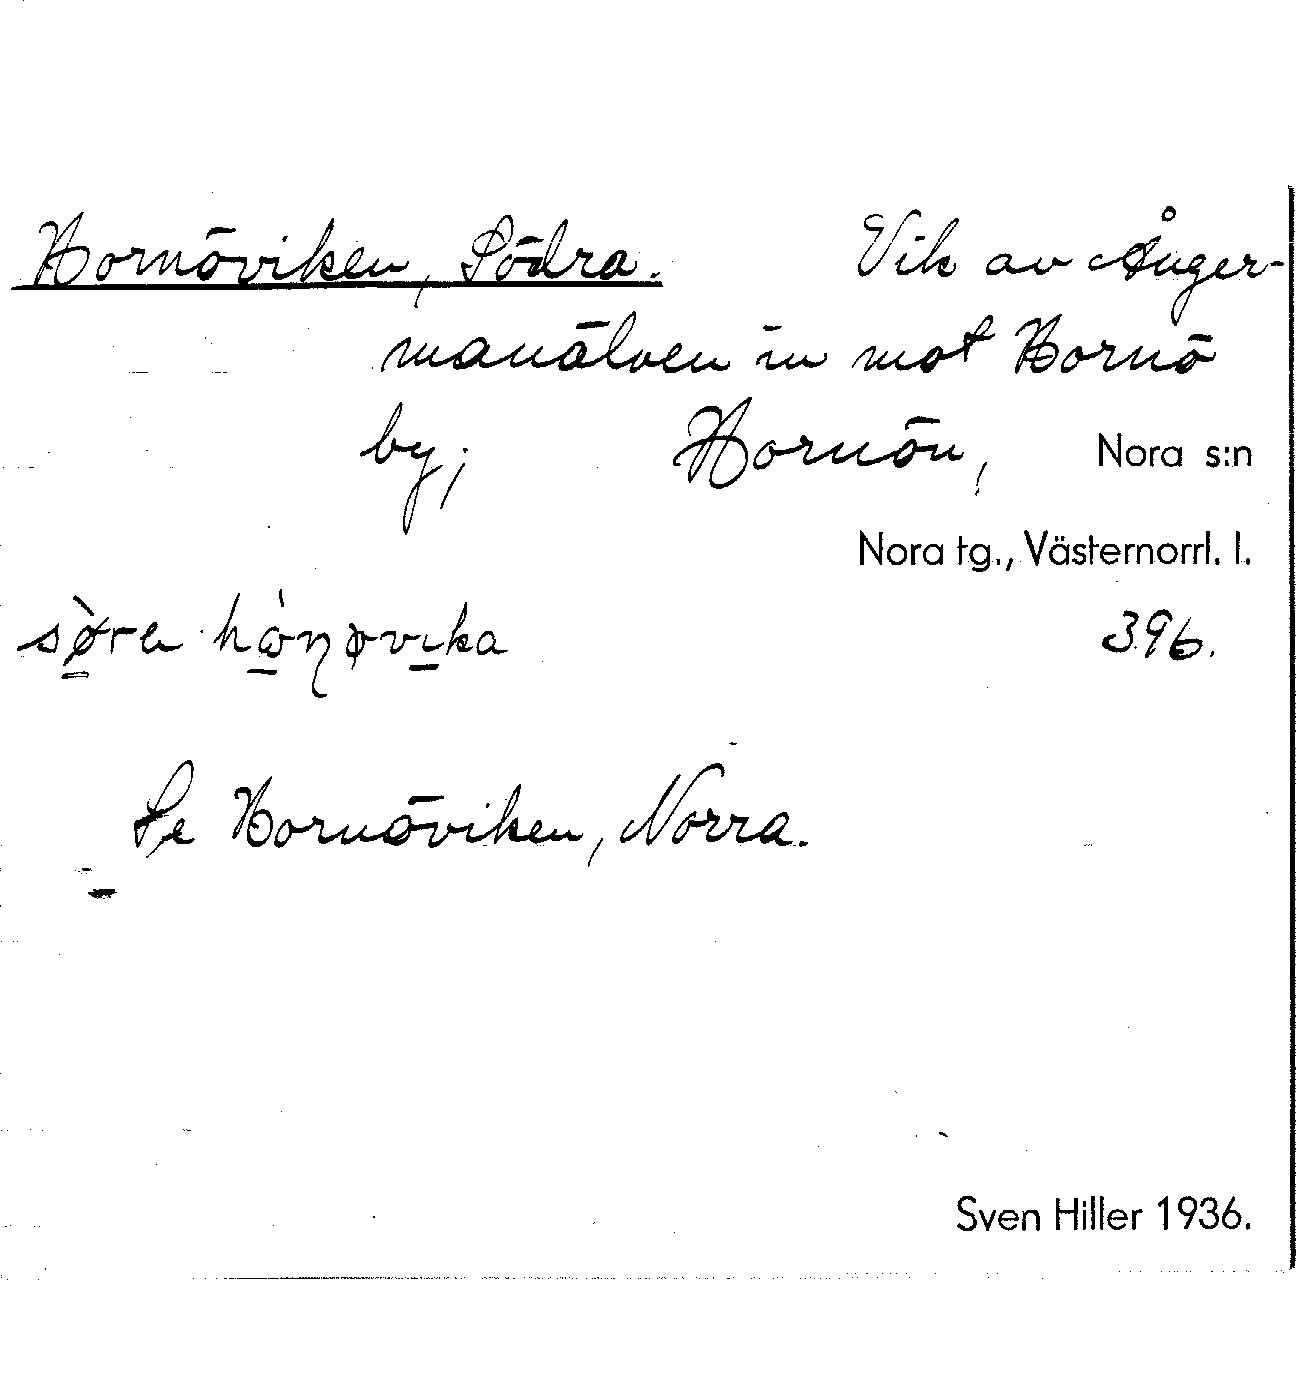 Hornöviken, Södra. Vik av Ånger-
manälven in mot Hornö
by; Hornön, Nora s:n
Nora tg., Västernorrl. l.
396.
Se Hornöviken, Norra.
Sven Hiller 1936.